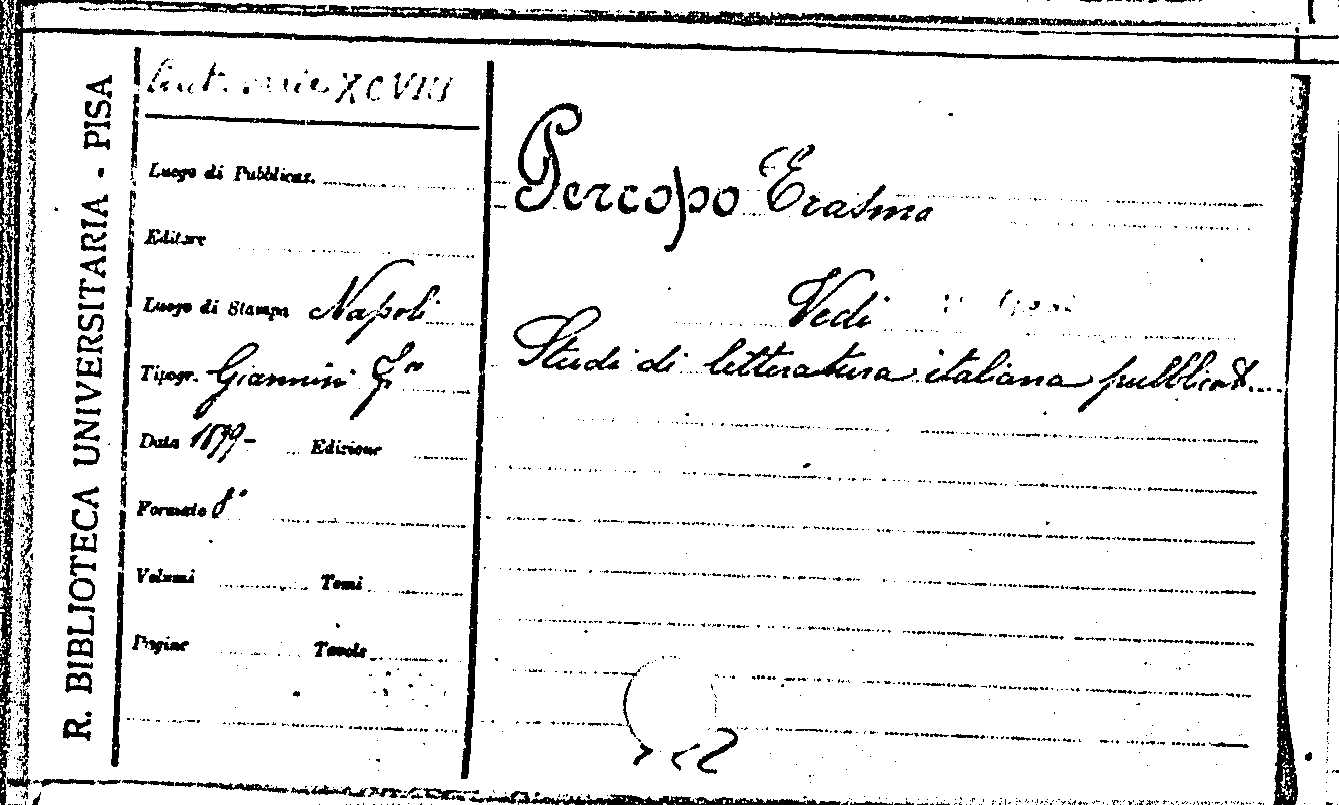 R. BIBLIOTECA UNIVERSITARIA - PISA
XCVIII
Luogo di Pubblicaz.
Editore
Luogo di Stampa Napoli
Tipogr. Giannini
Data 1899- Edizione
Formato 8°
Volumi Tomi
Pagine Tavole
Percopo Erasmo
Vedi
Studi di letteratura italiana pubblicat.